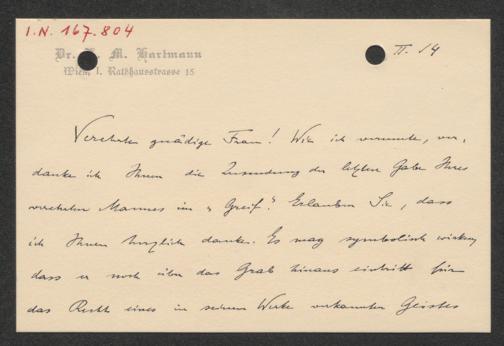 I.N. 167.804
Dr. L. M. Hartmann
Wien, I. Rathausstrasse 15
II. 14
Verehrte gnädige Frau! Wie ich vermute, ver-
danke ich Ihnen die Zusendung der letzten Gabe Ihres
verehrten Mannes im „Greif“. Erlauben Sie, dass
ich Ihnen herzlich danke. Es mag symbolisch wirken,
dass er noch über das Grab hinaus eintritt für
das Recht eines in seinem Werte verkannten Geistes